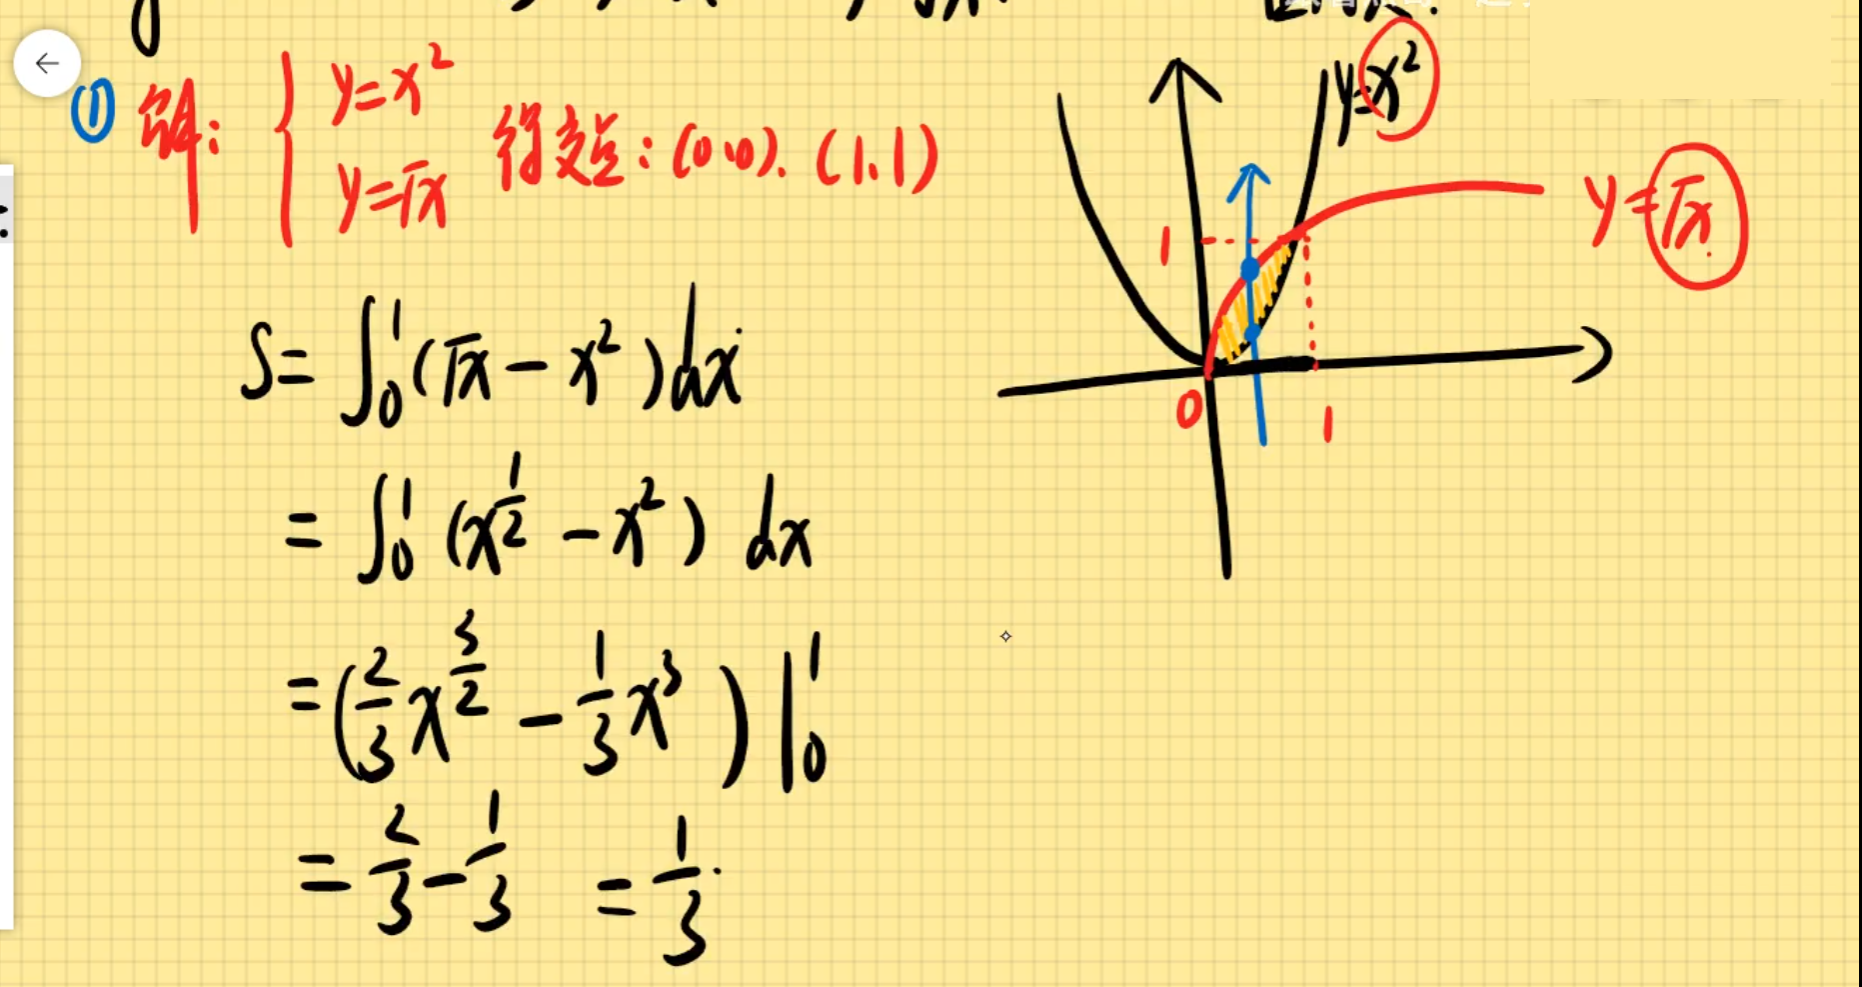 ① 解: { y=x² y=√x 得交点: (0,0). (1,1)
S= ∫₀¹ (√x - x²)dx
= ∫₀¹ (x^{1/2} - x²) dx
= (2/3 x^{3/2} - 1/3 x³) |₀¹
= 2/3 - 1/3 = 1/3.
y=x²
y=√x
1
0
1